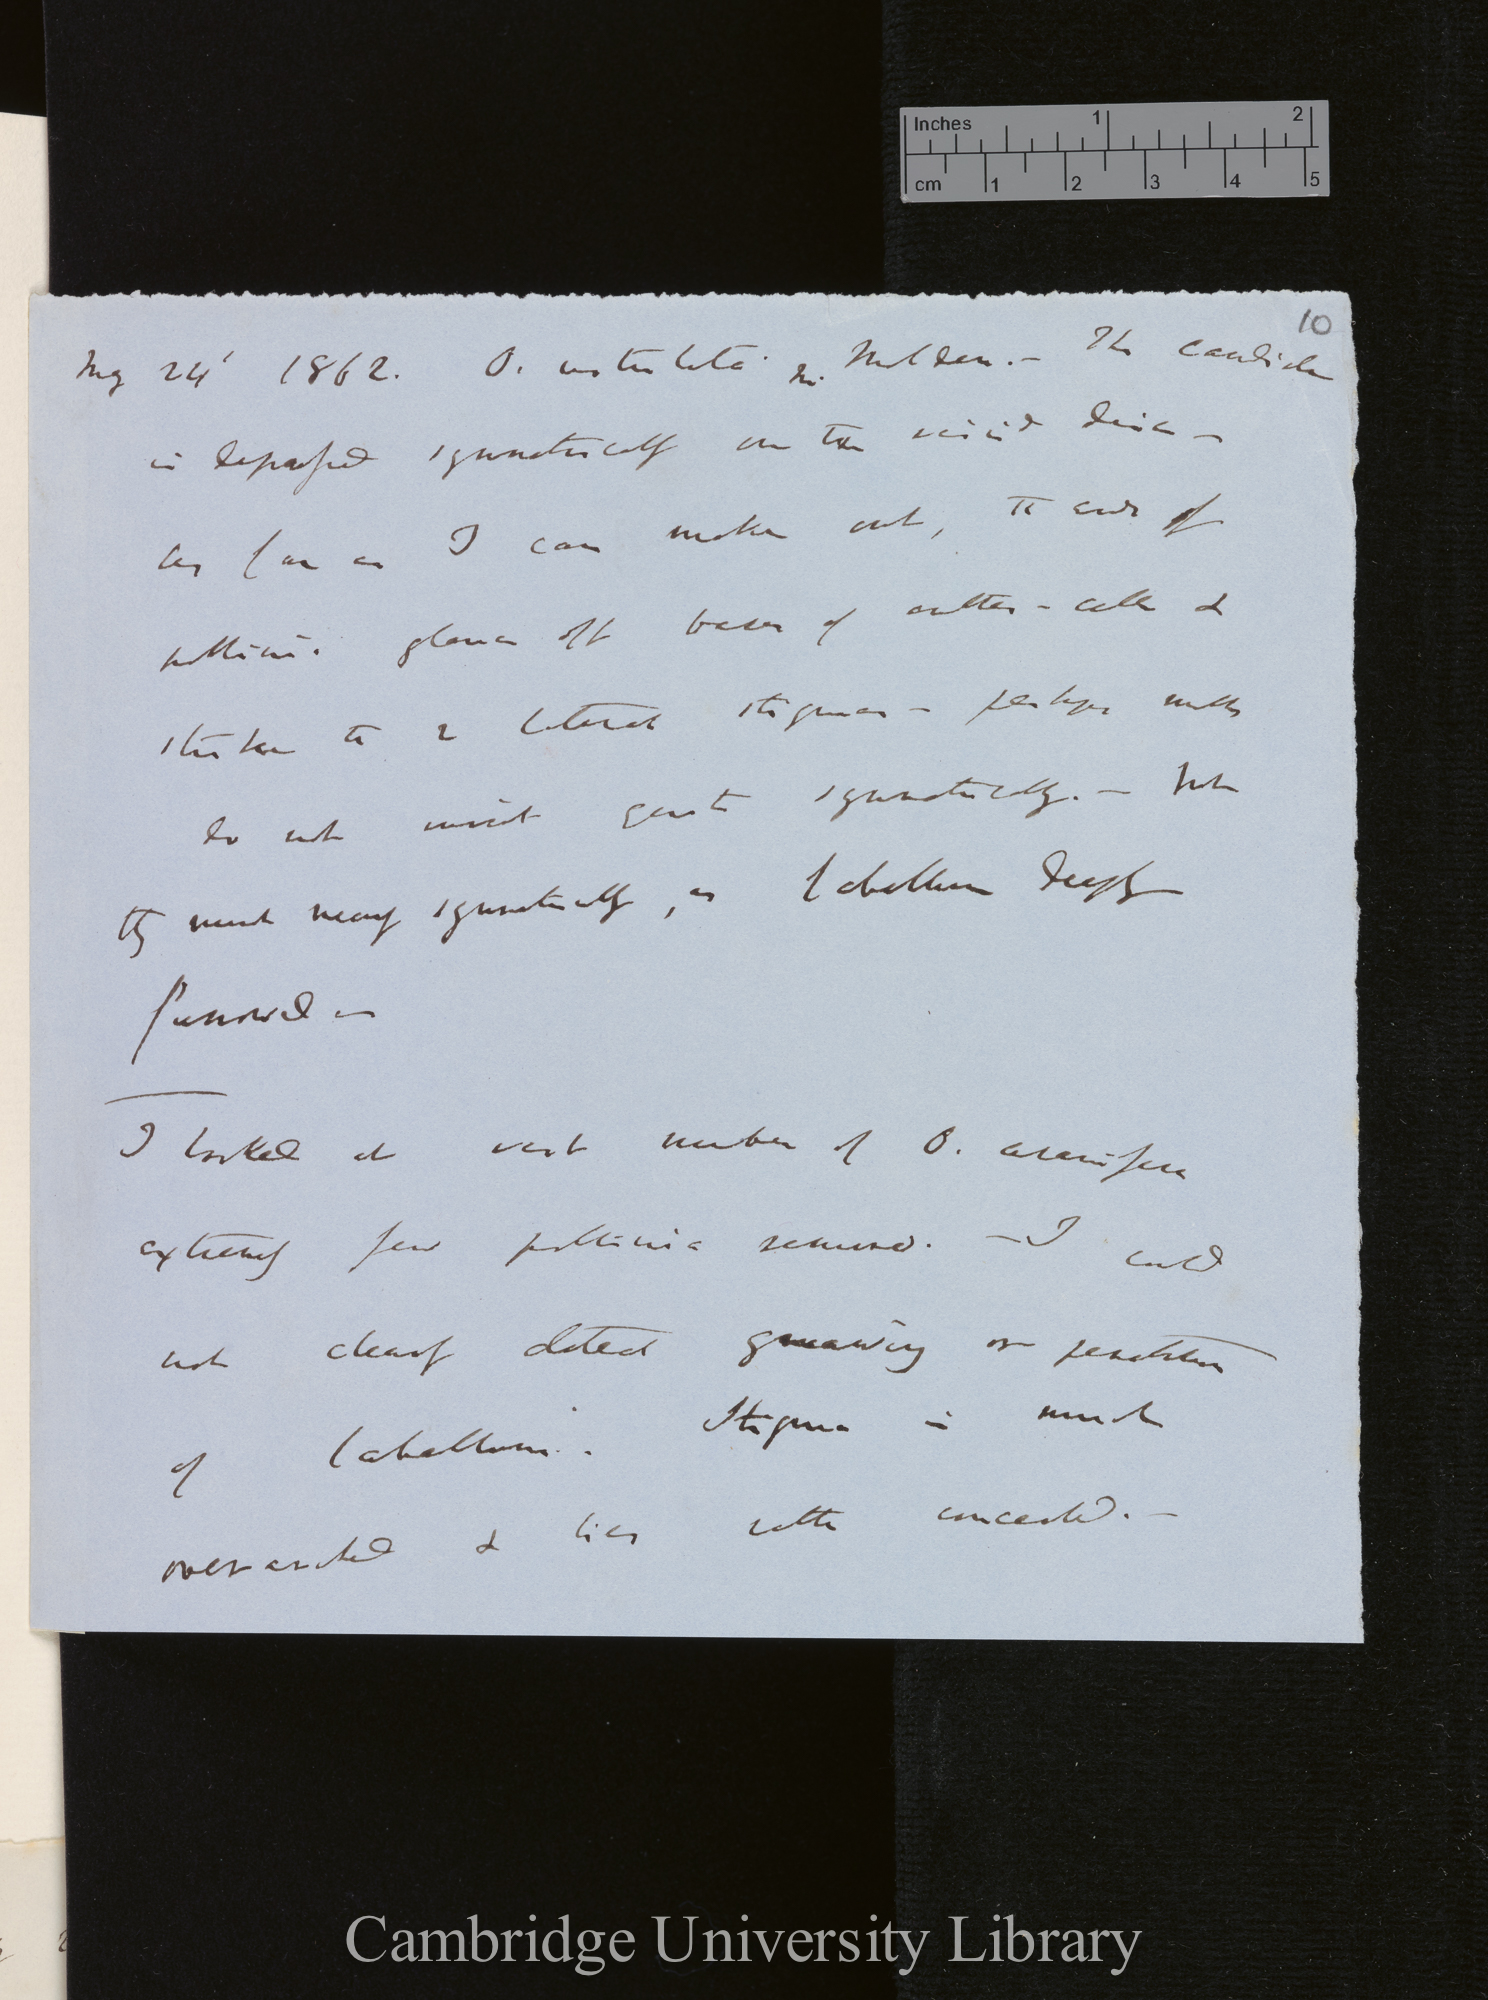 Inches 1 2
cm 1 2 3 4 5
10
May 24' 1862. O. ustulata Mr. Malden.— The caudicle
is depressed symmetrically on the viscid disc —
as far as I can make out, the ends of
pollinia glance off bases of anther-cells &
strike the 2 lateral stigmas — perhaps moths
do not insert quite symmetrically. —
They must nearly symmetrically, as labellum deeply
furrowed —
I looked at vast number of O. aranifera
extremely few pollinia removed. — I could
not clearly detect gnawing or penetration
of labellum. Stigma is much
overarched & lies rather concealed. —
Cambridge University Library